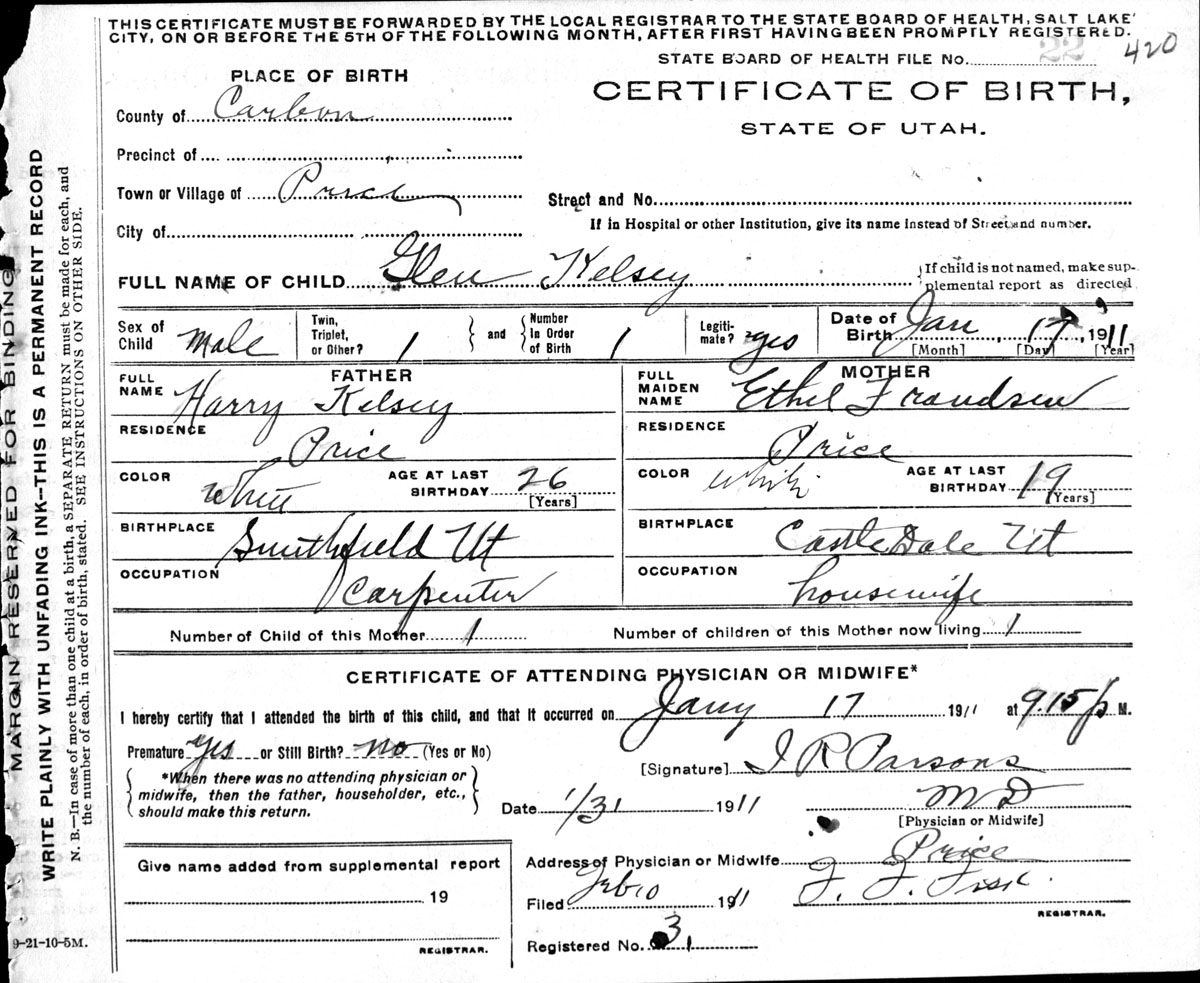 THIS CERTIFICATE MUST BE FORWARDED BY THE LOCAL REGISTRAR TO THE STATE BOARD OF HEALTH, SALT LAKE
CITY, ON OR BEFORE THE 5TH OF THE FOLLOWING MONTH, AFTER FIRST HAVING BEEN PROMPTLY REGISTERED.
STATE BOARD OF HEALTH FILE No. 22 420
PLACE OF BIRTH
CERTIFICATE OF BIRTH,
STATE OF UTAH.
County of Carbon
Precinct of
Town or Village of Price
Street and No.
City of
If in Hospital or other Institution, give its name instead of Street and number.
FULL NAME OF CHILD Glen Kelsey
{If child is not named, make sup-
plemental report as directed
Sex of Child Male
Twin, Triplet, or Other? 1 } and { Number In Order of Birth 1
Legiti-mate? yes
Date of Birth Jan 17, 1911
[Month] [Day] [Year]
FATHER
FULL NAME Harry Kelsey
RESIDENCE Price
COLOR White
AGE AT LAST BIRTHDAY 26 [Years]
BIRTHPLACE Smithfield Ut
OCCUPATION Carpenter
MOTHER
FULL MAIDEN NAME Ethel Frandsen
RESIDENCE Price
COLOR White
AGE AT LAST BIRTHDAY 19 [Years]
BIRTHPLACE Castle Dale Ut
OCCUPATION housewife
Number of Child of this Mother 1 Number of children of this Mother now living 1
CERTIFICATE OF ATTENDING PHYSICIAN OR MIDWIFE*
I hereby certify that I attended the birth of this child, and that it occurred on Jany 17 1911 at 9.15 p M.
Premature yes or Still Birth? no (Yes or No)
{ *When there was no attending physician or
midwife, then the father, householder, etc.,
should make this return. }
[Signature] I R Parsons
Date 1/31 1911 M D
[Physician or Midwife]
Give name added from supplemental report
19
REGISTRAR.
Address of Physician or Midwife Price
Filed Feb 10 1911 F. F. Fisk.
REGISTRAR.
Registered No. 3
MARGIN RESERVED FOR BINDING
WRITE PLAINLY WITH UNFADING INK—THIS IS A PERMANENT RECORD
N. B.—In case of more than one child at birth, a SEPARATE RETURN must be made for each, and
the number of each, in order of birth, stated. SEE INSTRUCTIONS ON OTHER SIDE.
9-21-10-5M.